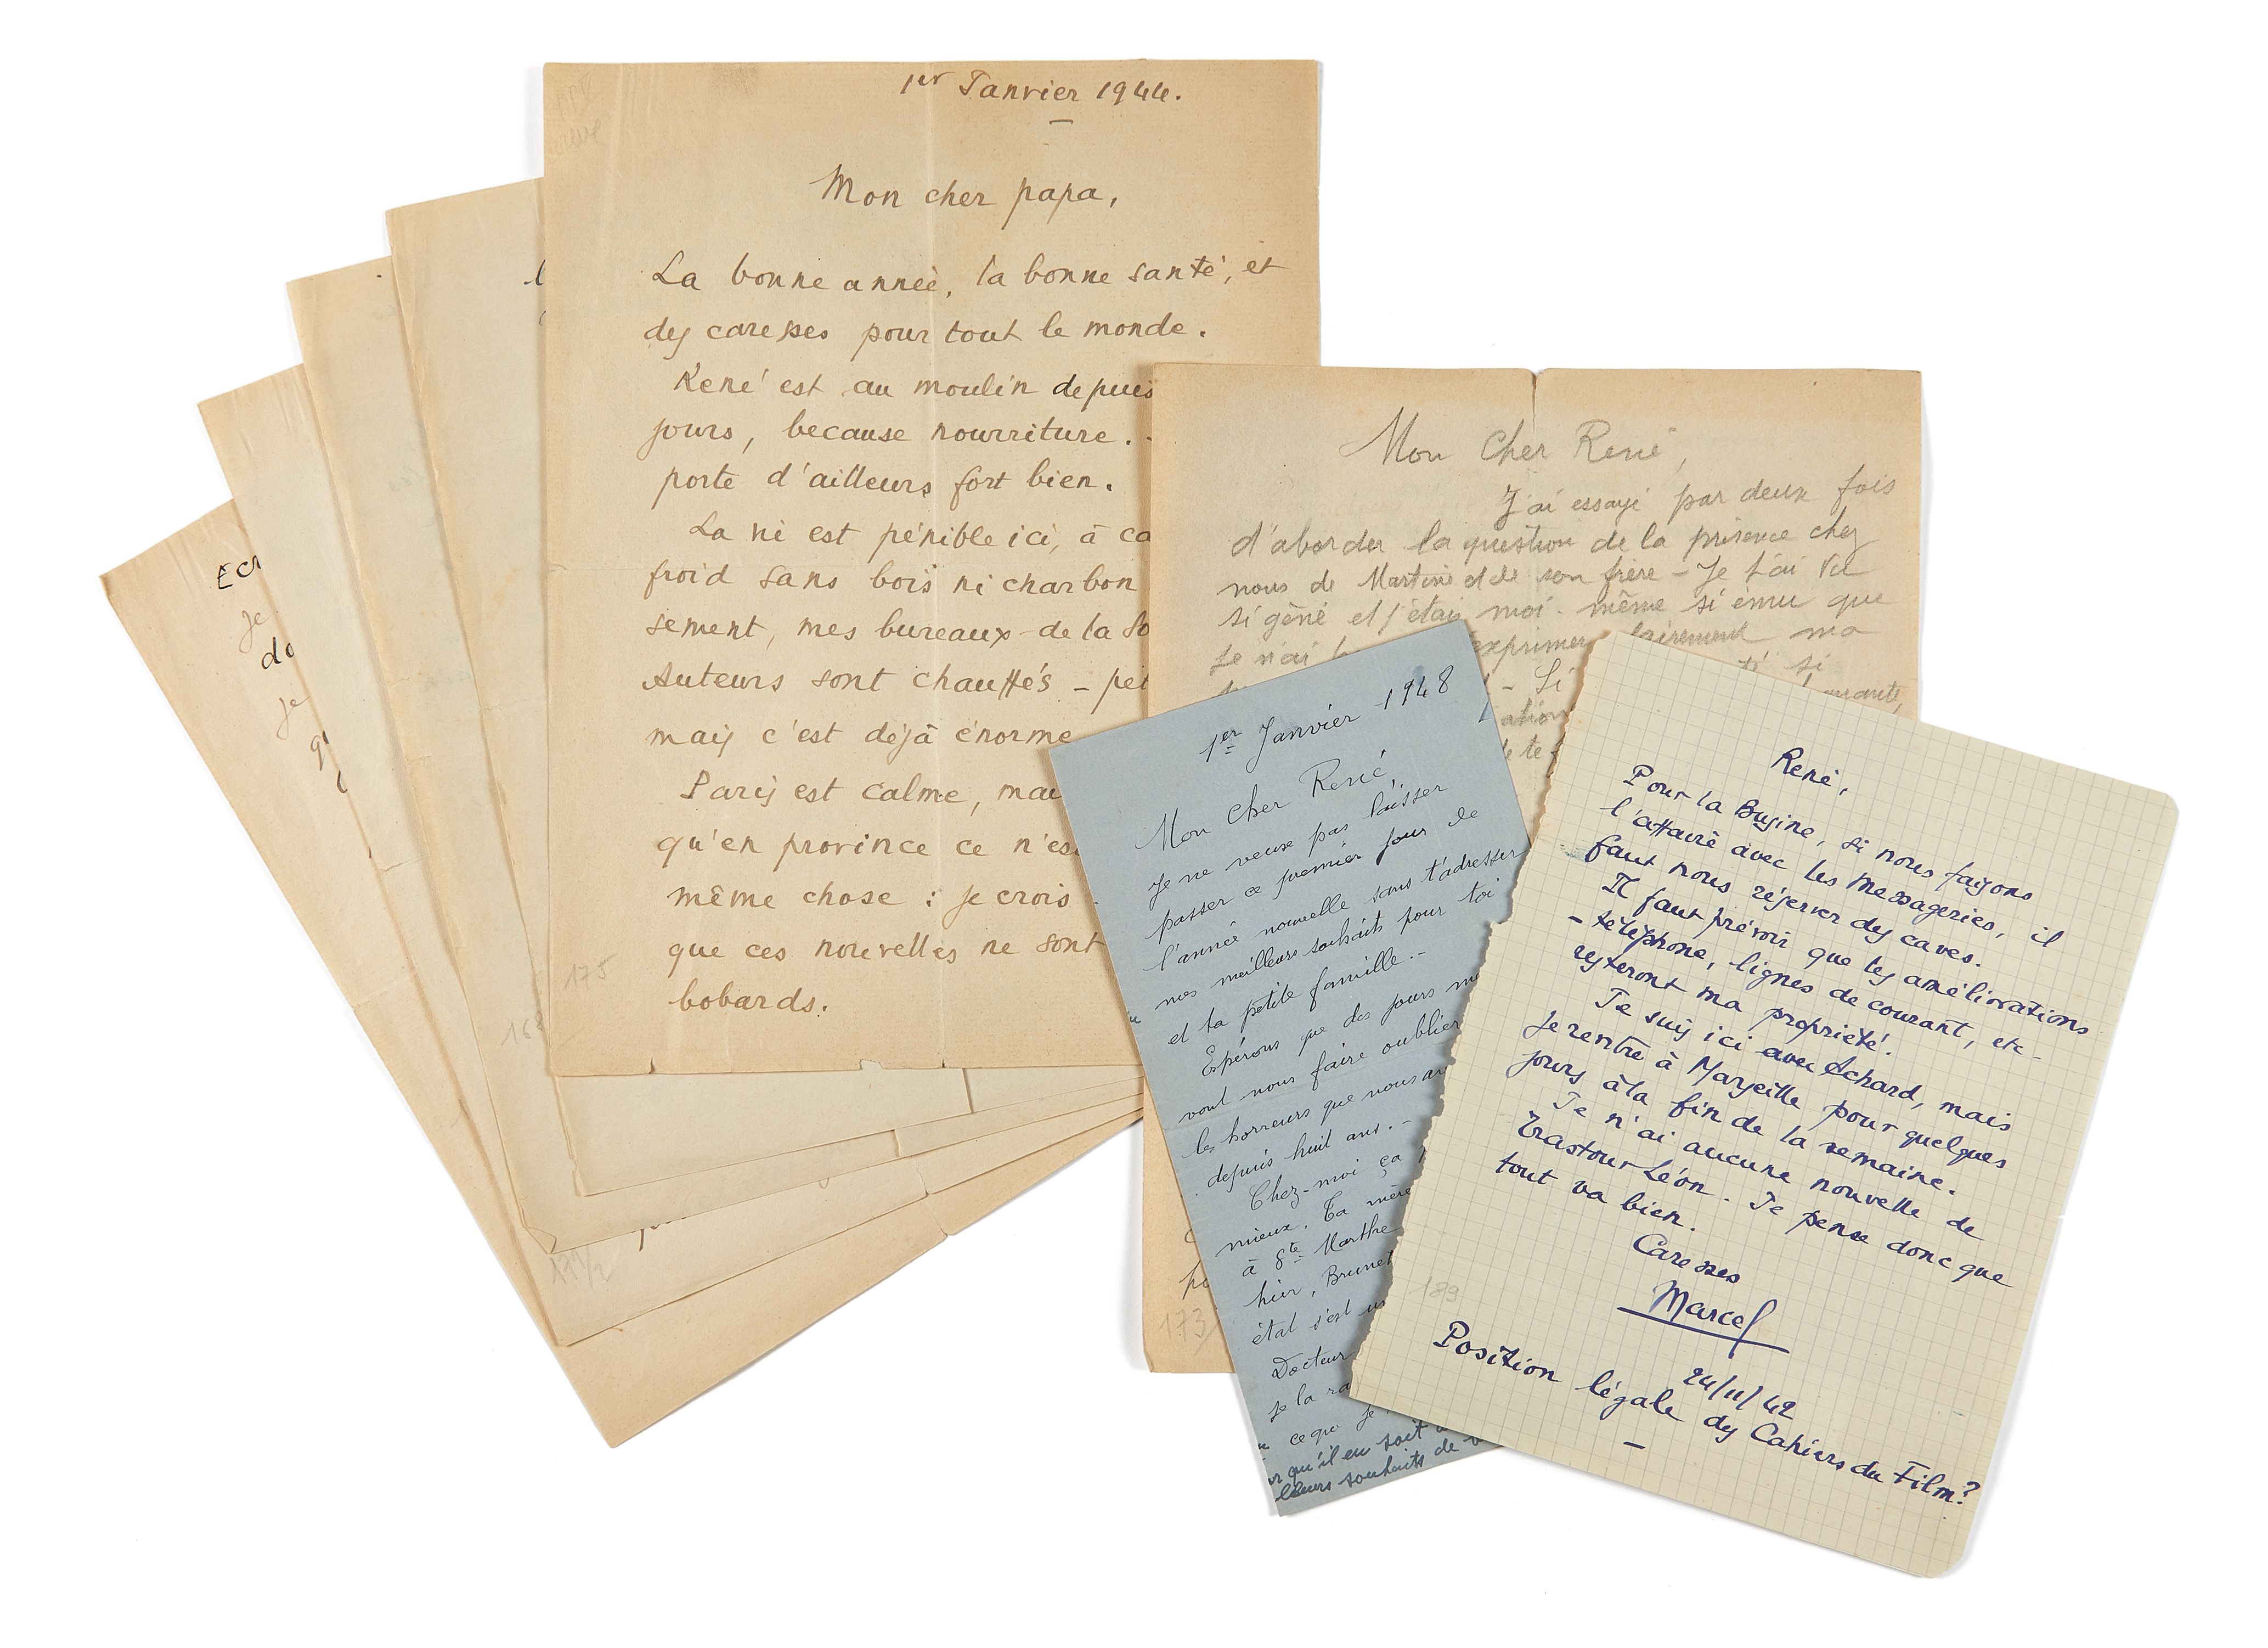 1er Janvier 1944.
Mon cher papa,
La bonne année, la bonne santé, et
des caresses pour tout le monde.
René est au moulin depuis
jours, because nourriture.
porte d'ailleurs fort bien.
La vie est pénible ici, à ca
froid sans bois ni charbon
sement, mes bureaux de la So
Auteurs sont chauffés - peu
mais c'est déjà énorme
Paris est calme, mai
qu'en province ce n'es
même chose : je crois
que ces nouvelles ne sont
bobards.
175
168
Ecr
je
do
je
Mon Cher René,
J'ai essayé par deux fois
d'aborder la question de la présence chez
nous de Martine et de son frère - Je t'ai vu
si gêné et j'étais moi-même si ému que
je n'ai exprimer clairement ma
si
- Si
173
1er Janvier 1948
Mon Cher René,
Je ne veux pas laisser
passer ce premier jour de
l'année nouvelle sans t'adresser
mes meilleurs souhaits pour toi
et ta petite famille.-
Espérons que des jours me
vont nous faire oublier
les horreurs que nous av
depuis huit ans.-
Chez-moi ça
mieux. Ta mère
à Ste Marthe
hier, Brunet
état s'est
Docteur
je la ra
ce que je
qu'il en soit
lleurs souhaits de
René,
Pour la Buzine, si nous faisons
l'affaire avec les Messageries, il
faut nous réserver des caves.
Il faut prévoir que les améliorations
- téléphone, lignes de courant, etc-
resteront ma propriété.
Je suis ici avec Achard, mais
je rentre à Marseille pour quelques
jours à la fin de la semaine.
Je n'ai aucune nouvelle de
Trastour Léon. Je pense donc que
tout va bien.
Caresses
Marcel
189
24/11/42
Position légale des Cahiers du Film?